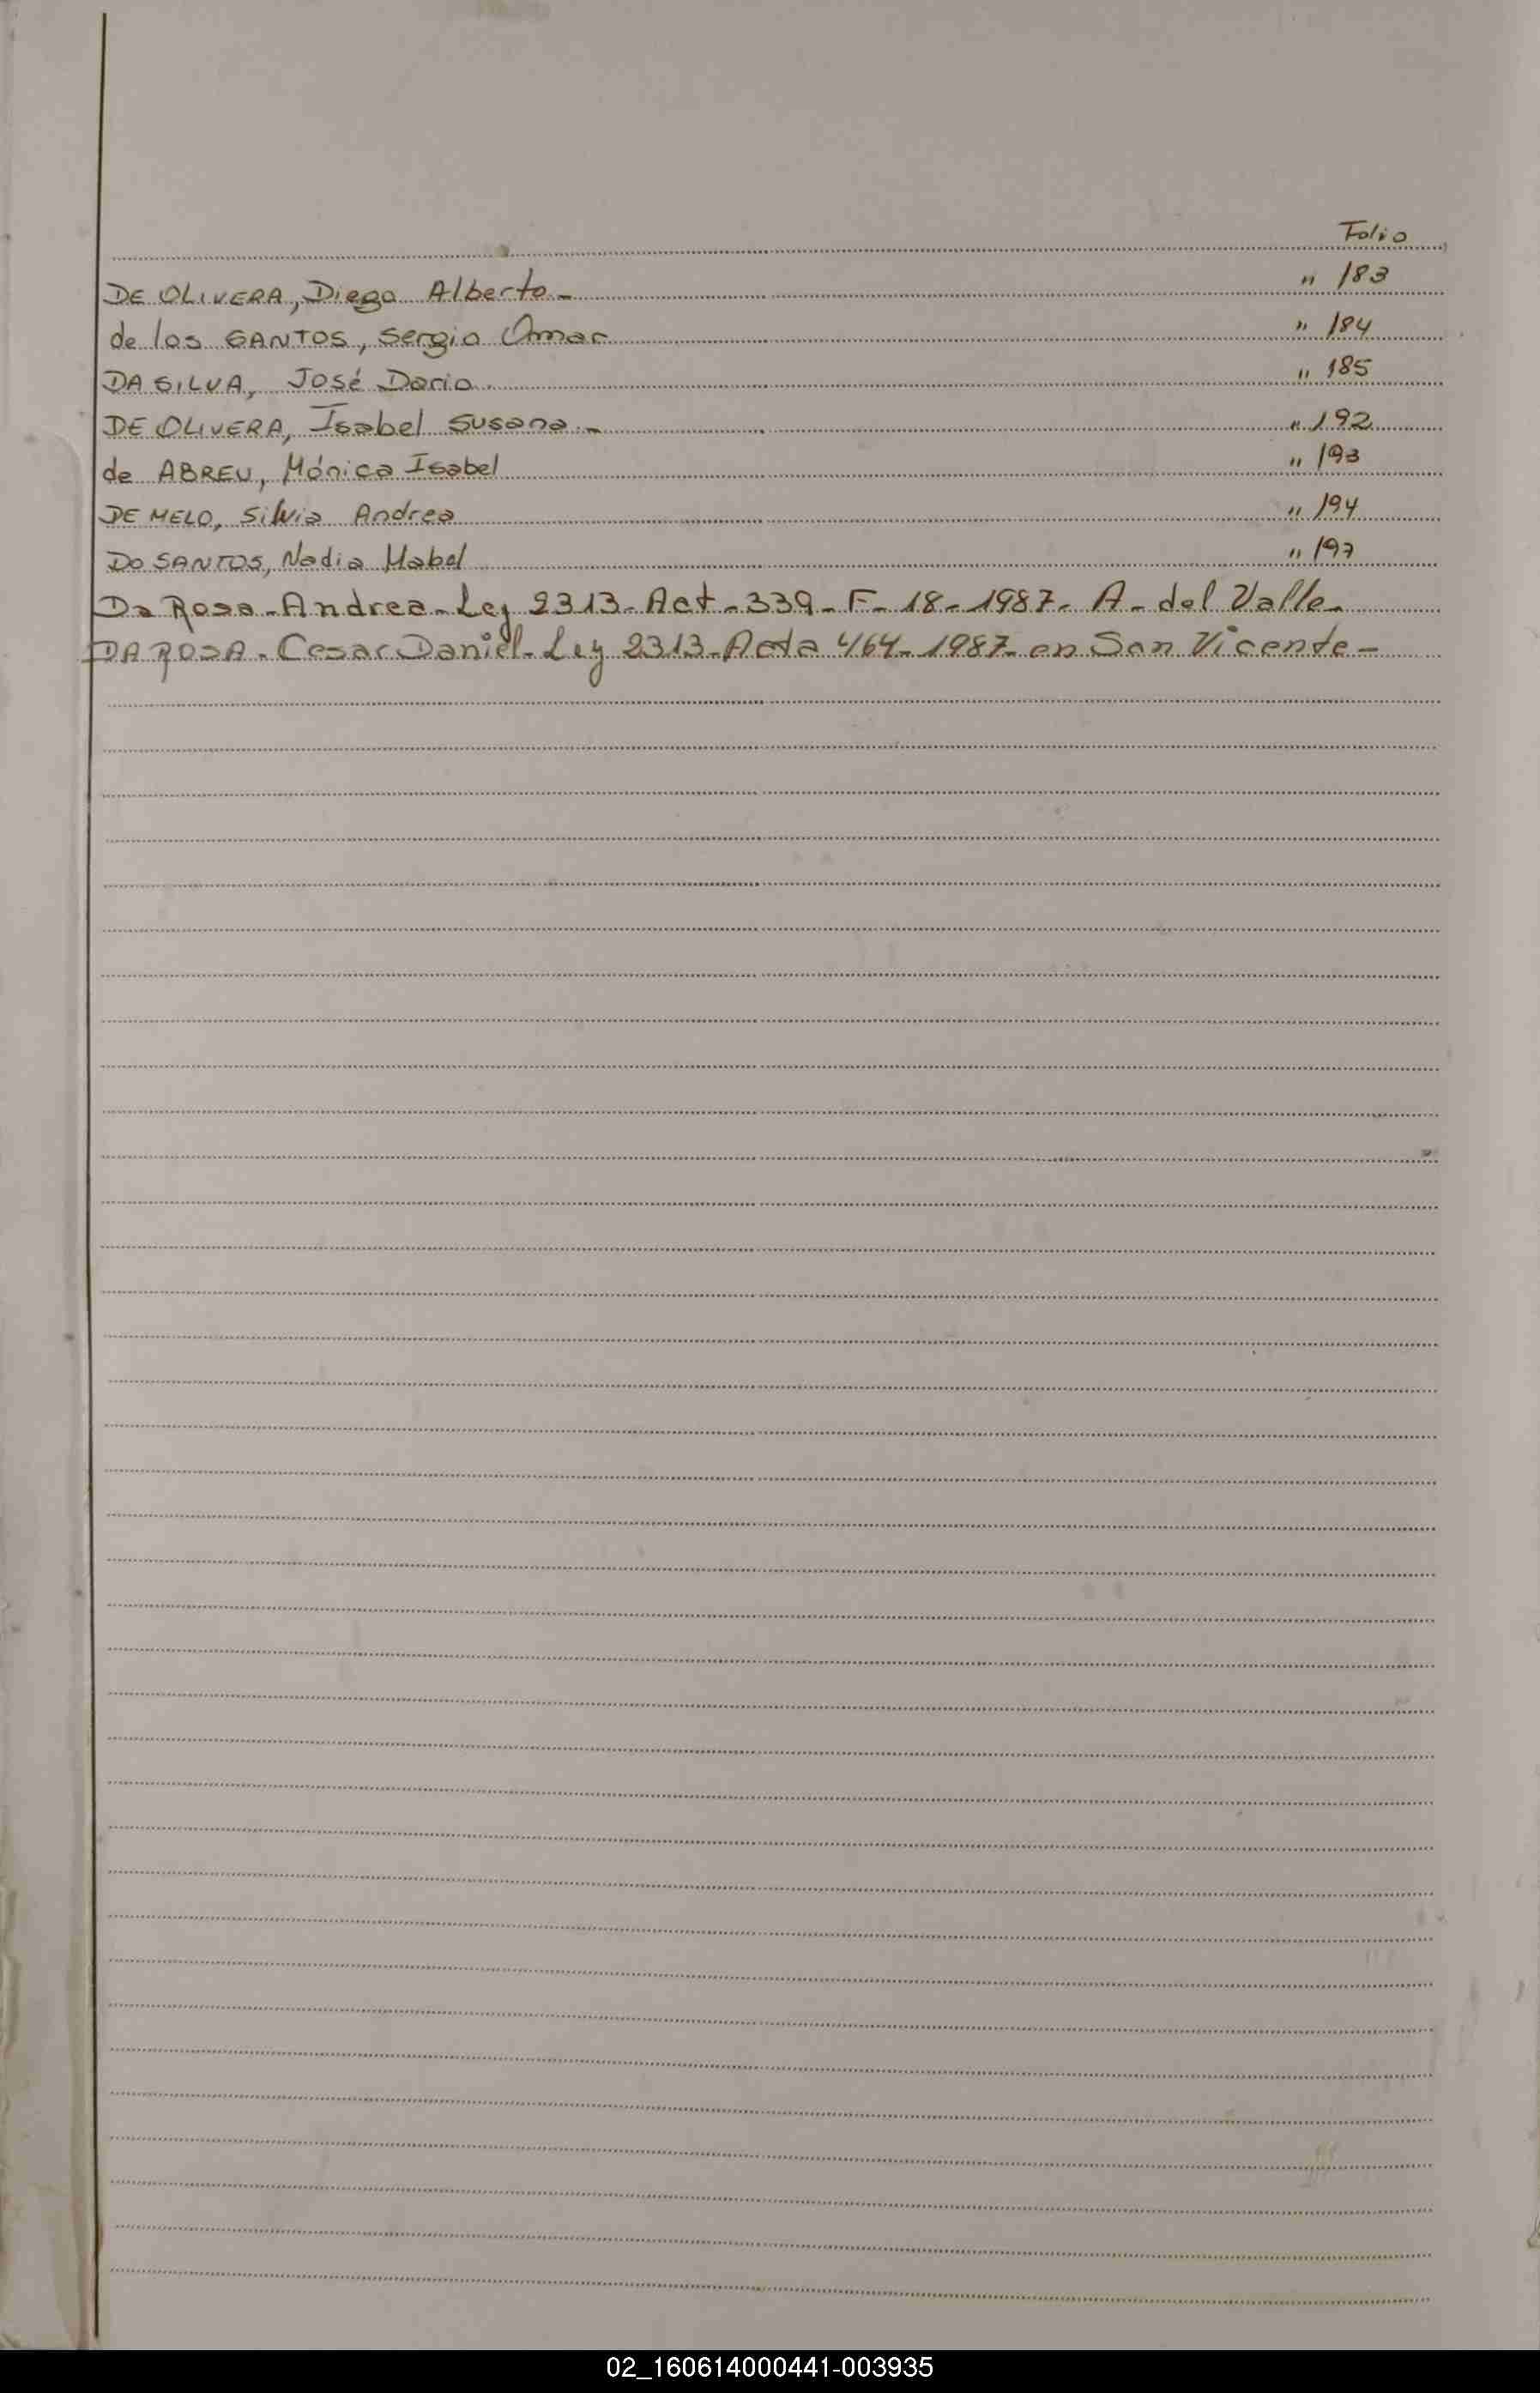 Folio
DE OLIVERA, Diego Alberto - " 183
de los SANTOS, Sergio Omar " 184
DA SILVA, José Dario. " 185
DE OLIVERA, Isabel Susana.- " 192
de ABREU, Mónica Isabel " 193
DE MELO, Silvia Andrea " 194
DO SANTOS, Nadia Mabel " 197
Da Rosa - Andrea - Ley 2313 - Act - 339 - F - 18 - 1987 - A - del Valle -
DA ROSA - Cesar Daniel - Ley 2313 - Acta 464 - 1987 en San Vicente -
02_160614000441-003935